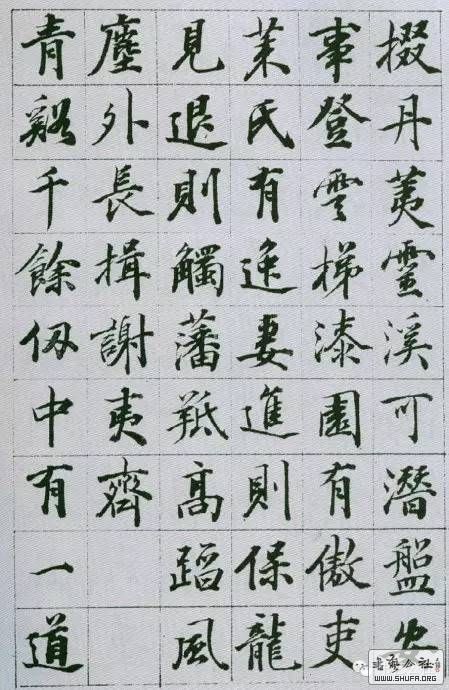 掇丹荑靈溪可潛盤安
事登雲梯漆園有傲吏
萊氏有逸妻進則保龍
見退則觸藩羝高蹈風
塵外長揖謝夷齊
青谿千餘仞中有一道
书艺公社
WWW.SHUFA.ORG